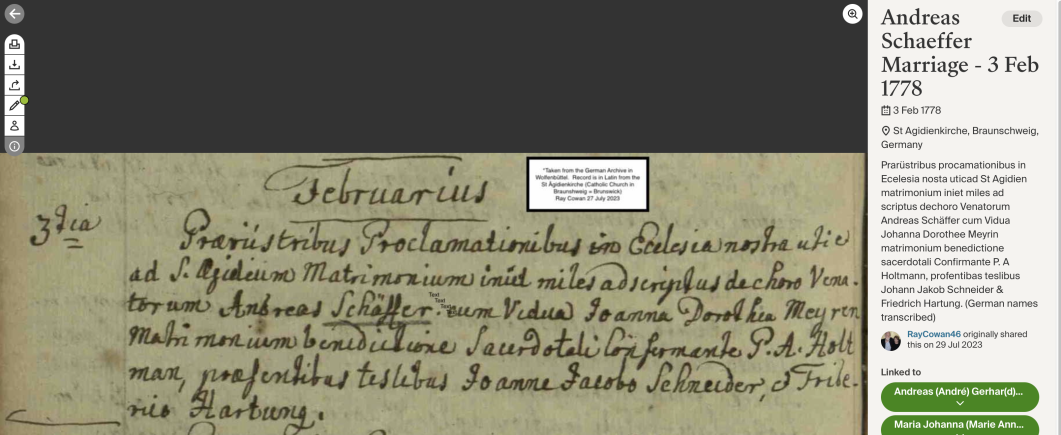 Andreas
Schaeffer
Marriage - 3 Feb
1778
Edit
3 Feb 1778
St Agidienkirche, Braunschweig,
Germany
Prarüstribus procamationibus in
Ecelesia nosta uticad St Agidien
matrimonium iniet miles ad
scriptus dechoro Venatorum
Andreas Schäffer cum Vidua
Johanna Dorothee Meyrin
matrimonium benedictione
sacerdotali Confirmante P. A
Holtmann, profentibas teslibus
Johann Jakob Schneider &
Friedrich Hartung. (German names
transcribed)
RayCowan46 originally shared
this on 29 Jul 2023
Linked to
Andreas (André) Gerhar(d)...
Maria Johanna (Marie Ann...
"Taken from the German Archive in
Wolfenbüttel. Record is in Latin from the
St Ägidienkirche (Catholic Church in
Braunshweig = Brunswick)
Ray Cowan 27 July 2023
Februarius
3tia
Prævüstribus Proclamationibus in Ecclesia nostra utic
ad S. Ægideum Matrimonium iniit miles adscriptus de choro Vena-
torum Andreas Schäffer cum Vidua Joanna Dorothea Meyrin
Text
Text
Text
Matrimonium benedictione Sacerdotali Confirmante P. A. Holt
man, præsentibus testibus Joanne Jacobo Schneider, & Fride-
rico Hartung.